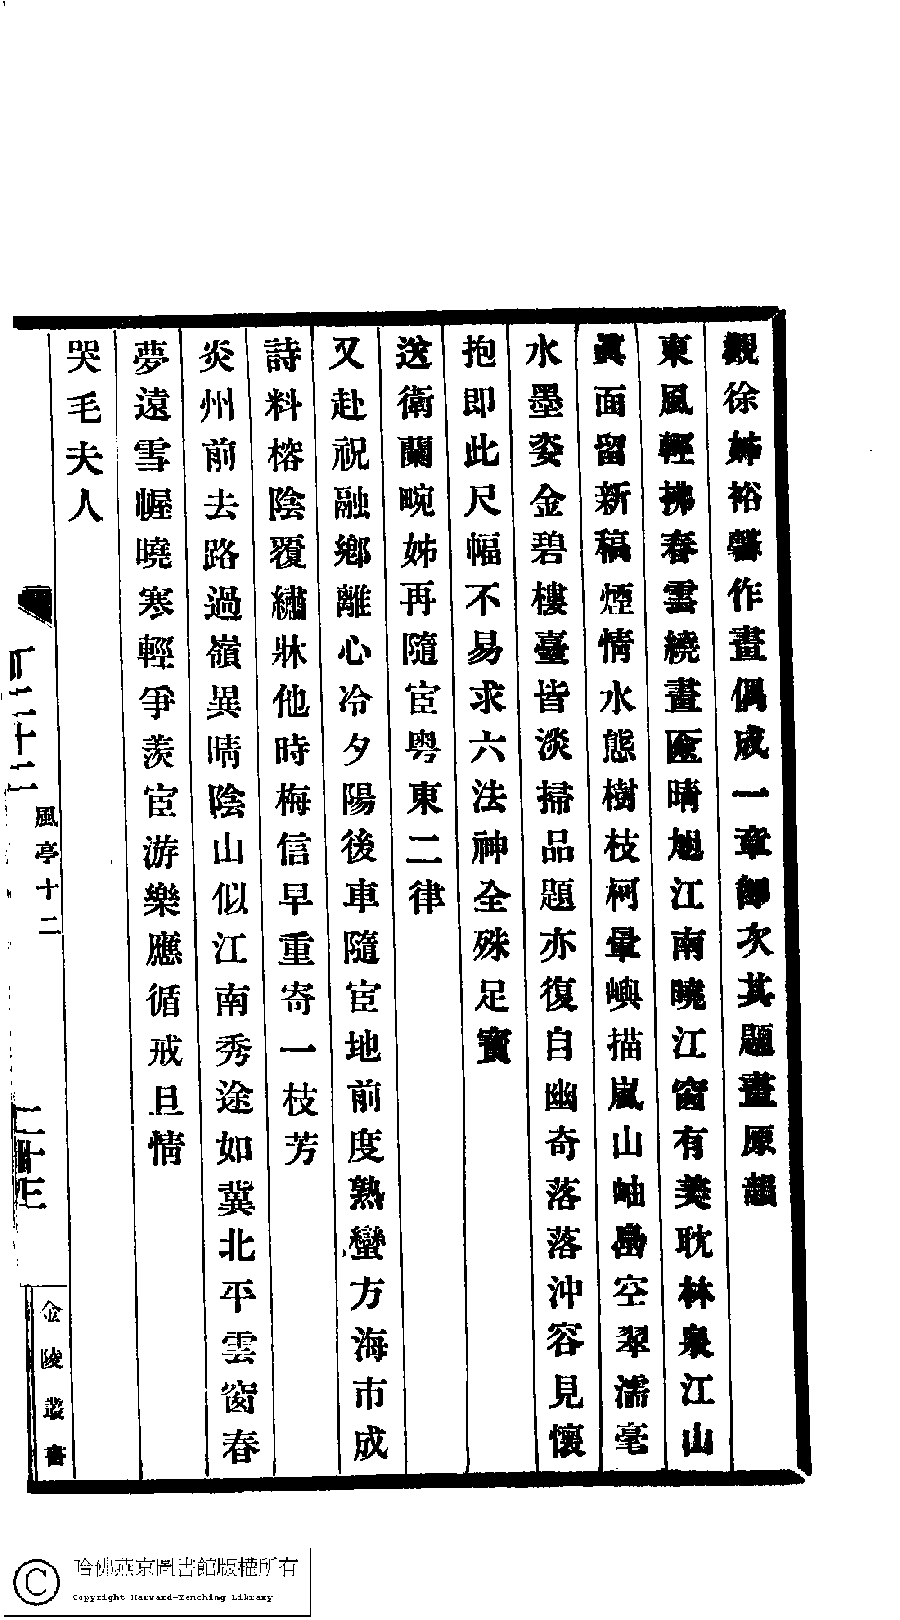 觀徐姊裕馨作畫偶成一章卽次其題畫原韻
東風輕拂春雲繞畫匳晴旭江南曉江窗有美耽林泉江山
眞面留新稿煙情水態樹枝柯暈嶼描嵐山岫島空翠濡毫
水墨姿金碧樓臺皆淡掃品題亦復自幽奇落落沖容見懷
抱卽此尺幅不易求六法神全殊足寶
送衛蘭畹姊再隨宦粤東二律
又赴祝融鄉離心冷夕陽後車隨宦地前度熟蠻方海市成
詩料榕陰覆繡牀他時梅信早重寄一枝芳
炎州前去路過嶺異晴陰山似江南秀途如冀北平雲窗春
夢遠雪幄曉寒輕爭羨宦游樂應循戒旦情
哭毛夫人
風亭十二
二十三
金陵叢書
哈佛燕京圖書館版權所有
Copyright Harvard-Yenching Library